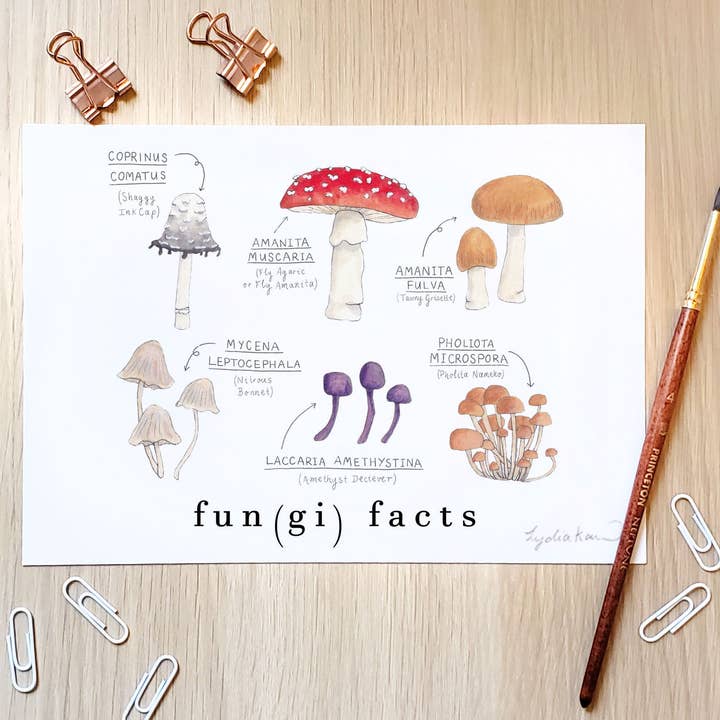 COPRINUS
COMATUS
(Shaggy
Ink Cap)
AMANITA
MUSCARIA
(Fly Agaric
or Fly Amanita)
AMANITA
FULVA
(Tawny Grisette)
MYCENA
LEPTOCEPHALA
(Nitrous
Bonnet)
LACCARIA AMETHYSTINA
(Amethyst Deciever)
PHOLIOTA
MICROSPORA
(Pholita Nameko)
fun(gi) facts
Lydia
PRINCETON